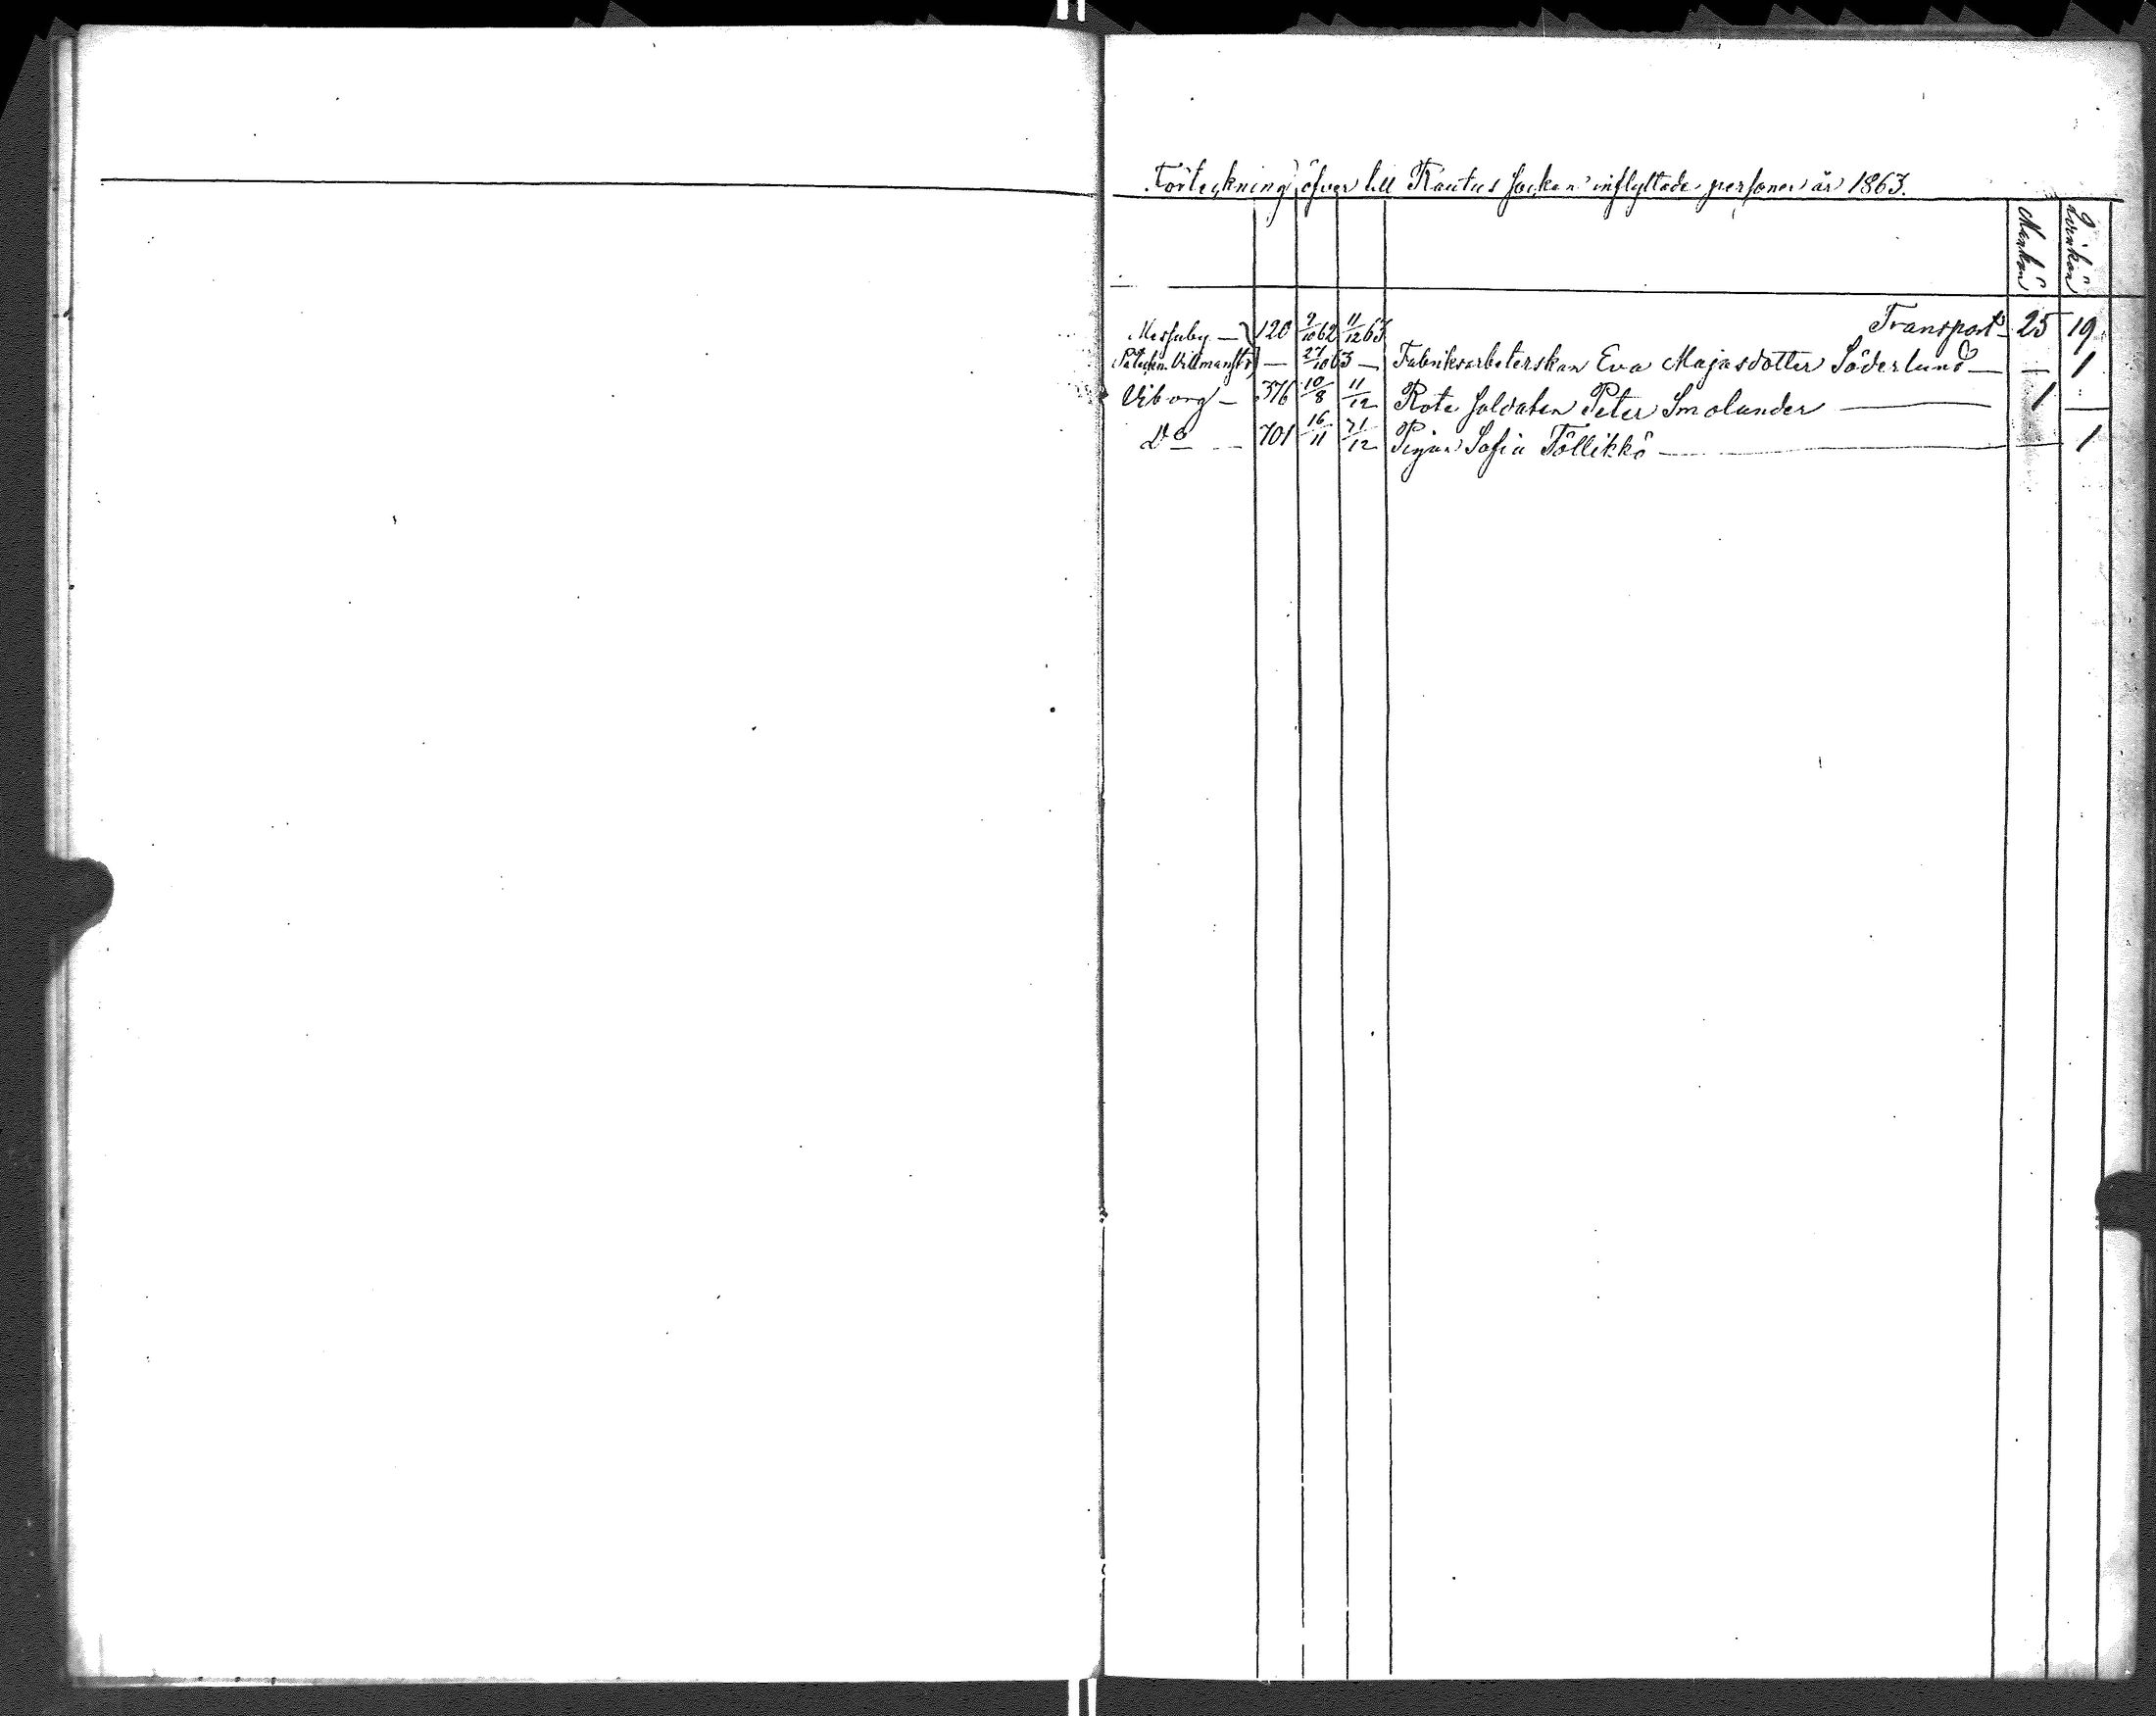 Förteckning öfver till Rautus socken inflyttade personer år 1863.
Mankön Qvinkön
Transport 25 19
Messuby — 120 9/10 62 11/12 63
Påteckn. Villmanstr. — 27/10 63 — Fabriksarbeterskan Eva Majasdotter Söderlund — — 1
Viborg — 376 10/8 11/12 Rote soldaten Peter Smolander — 1 —
Do — 701 16/11 21/12 Pigan Sofia Töllikkö — — 1